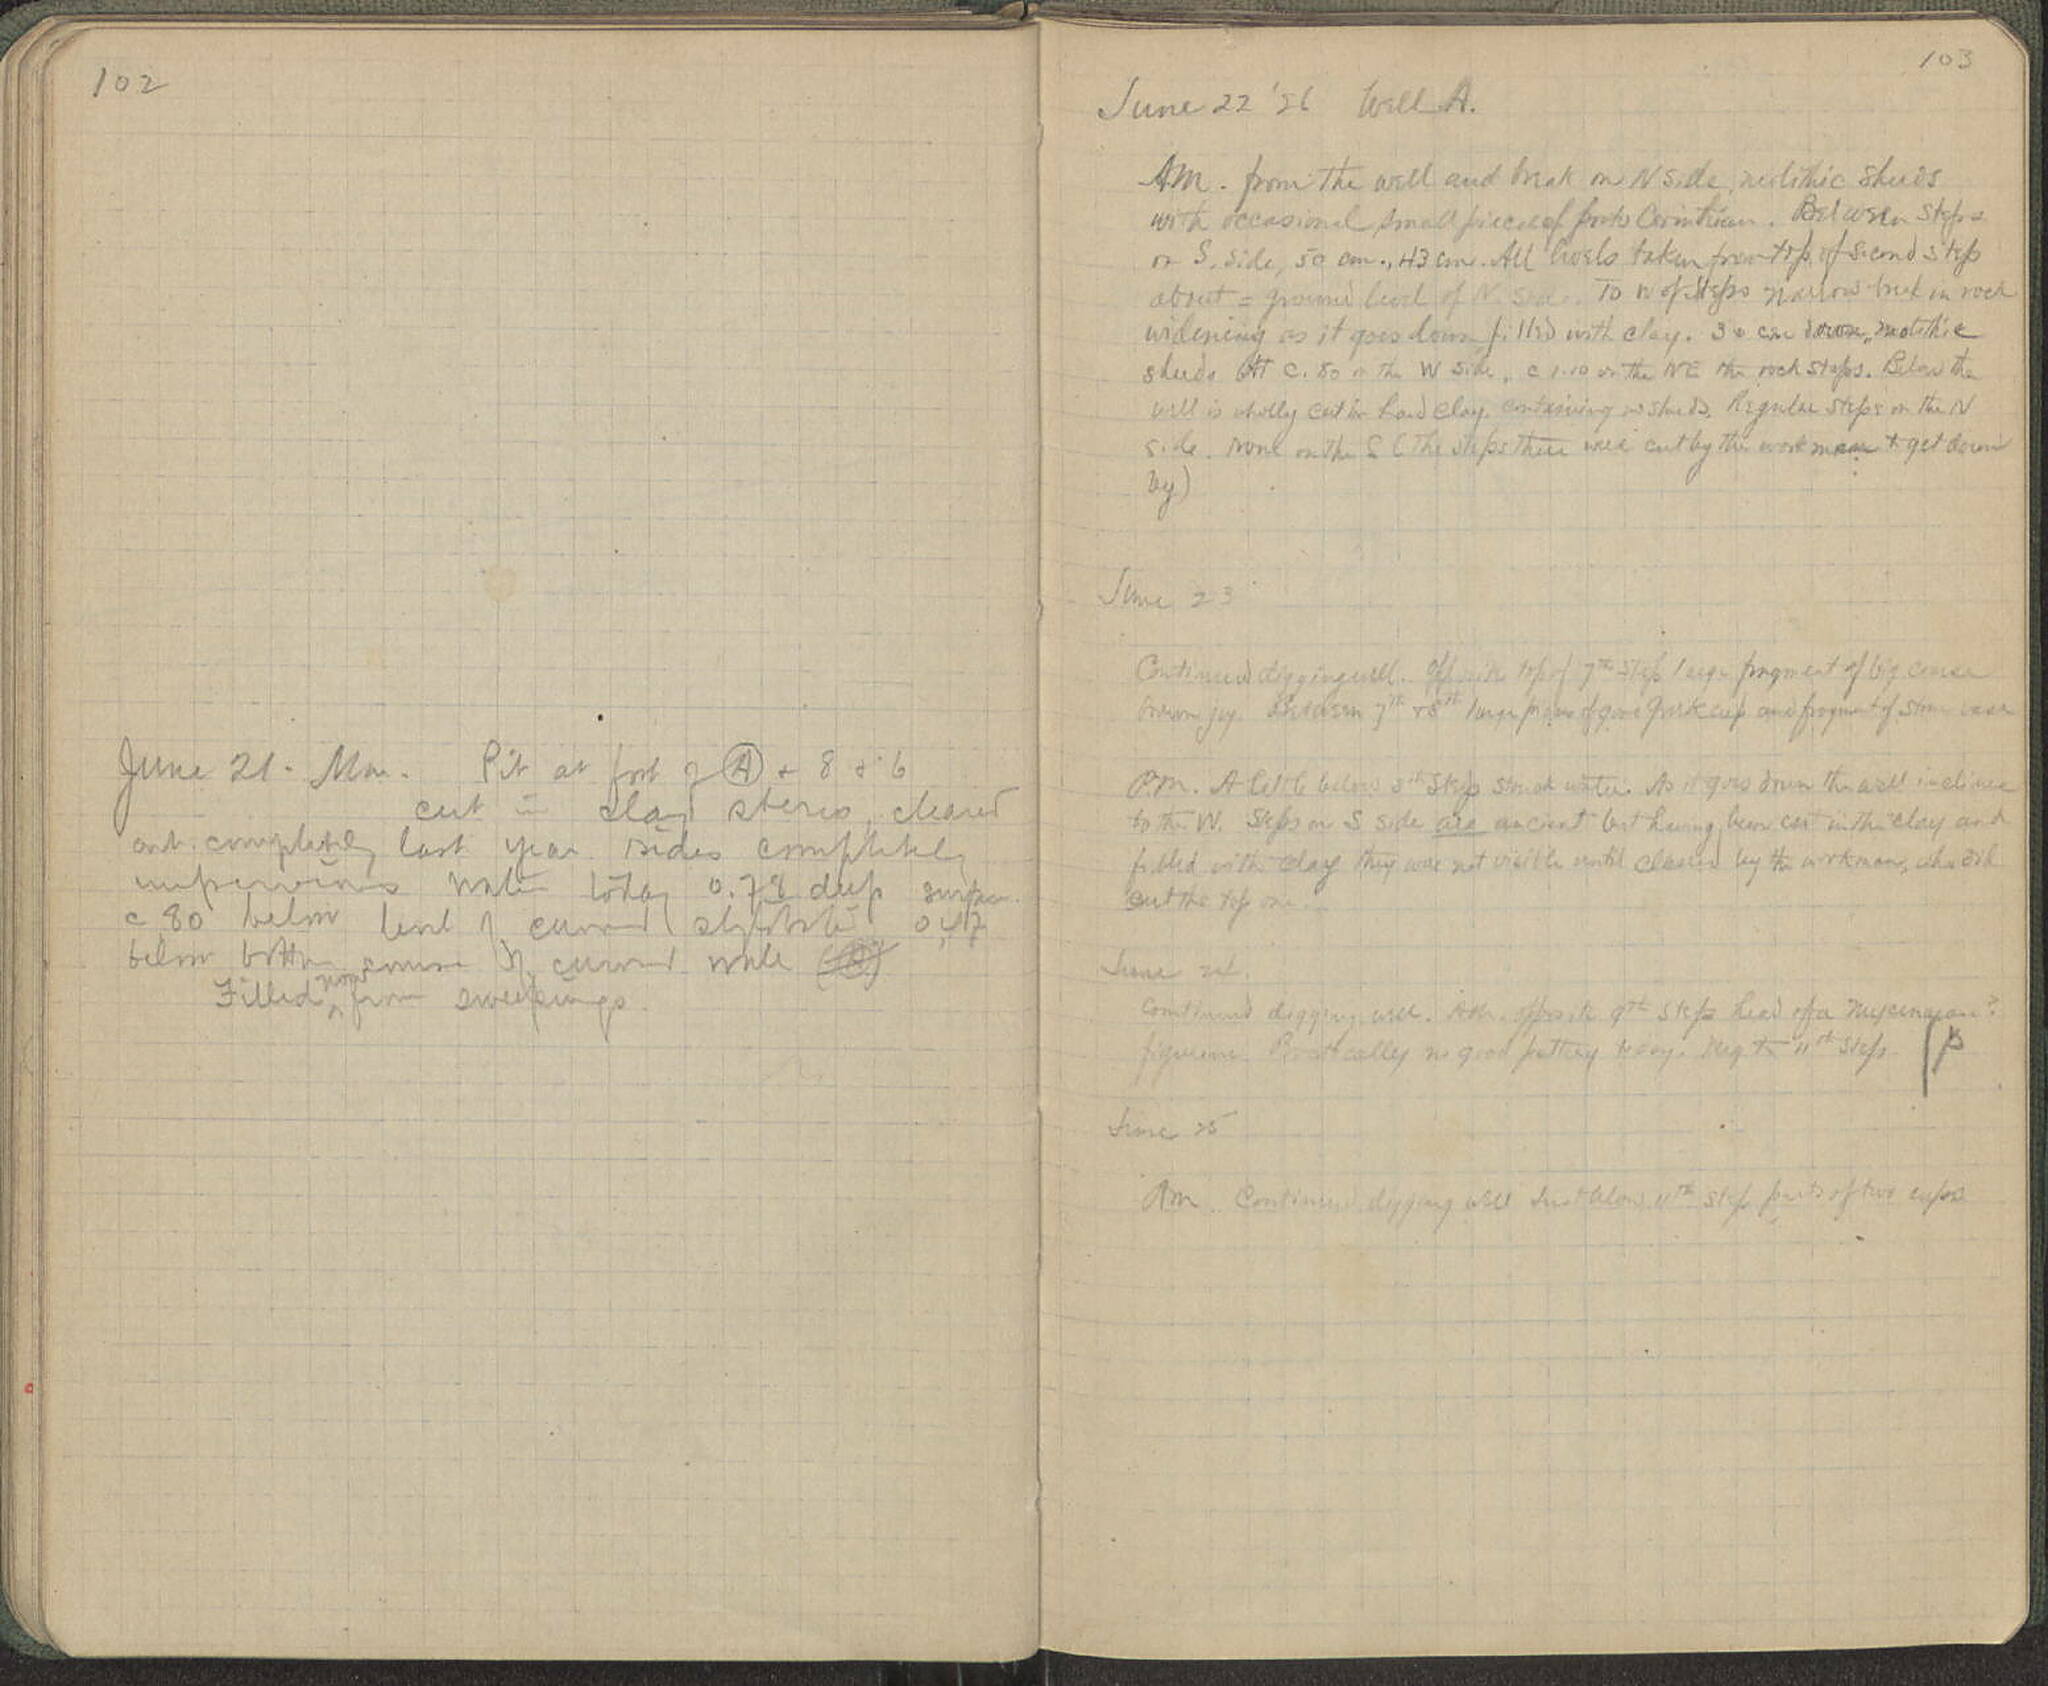 102
June 21. Mon. Pit at foot of (A) + 8 + 6
cut in clay stereo, cleared
out completely last year sides completely
impervious Water today 0.78 deep surface
c 80 below level of curved stylobate 0.47
below bottom course of curved wall
Filled now from sweepings.
103
June 22 '26 Well A.
AM. from the well and break on N side, neolithic sherds
with occasional small pieces of proto Corinthian. Between steps
on S. side, 50 cm., 43 cm. All levels taken from top of second step
about = ground level of N. side. To W of steps narrow break in rock
widening as it goes down filled with clay. 30 cm down, neolithic
sherds At c. 80 on the W side, c 1.10 on the NE the rock stops. Below the
well is wholly cut in hard clay containing no sherds. Regular steps on the N
side. None on the S (The steps there were cut by the workman to get down
by)
June 23
Continued digging well. Opposite top of 7th step large fragment of big coarse
brown jug. Between 7th + 8th large piece of good Greek cup and fragment of stone vase
P.M. A little below 8th step struck water. As it goes down the well inclines
to the W. Steps on S side are ancient but having been cut in the clay and
filled with clay they were not visible until cleared by the workman, who did
cut the top one.
June 24.
Continued digging well. AM. opposite 9th step head of a Mycenaean?
figurine. Practically no good pottery today. Dug to 11th step. P
June 25
AM. Continued digging well Just below 11th step parts of two cups